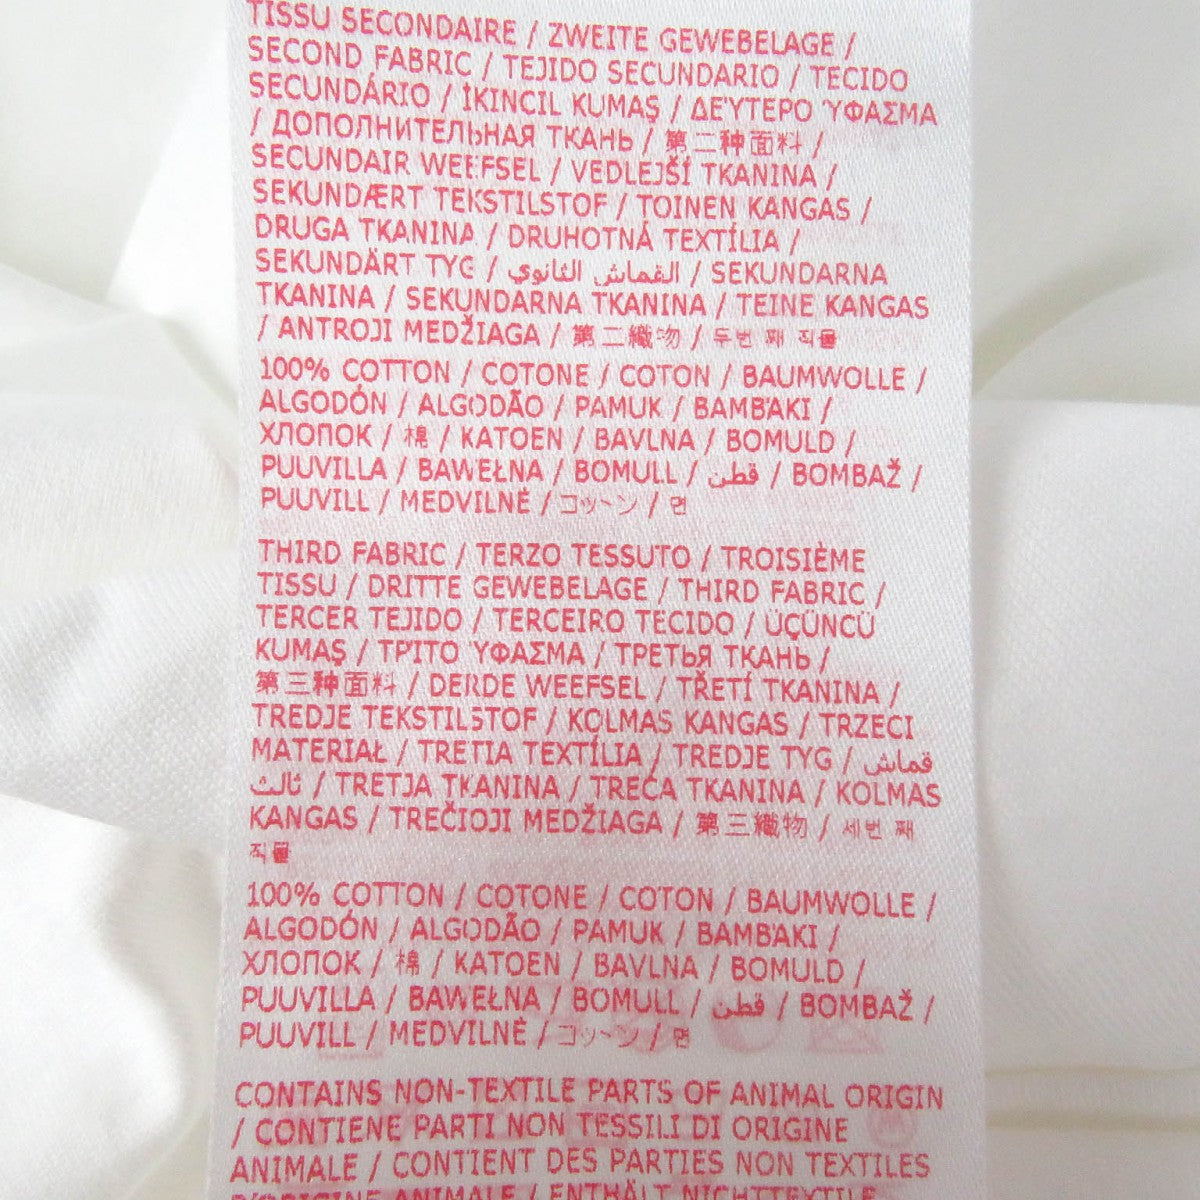 TISSU SECONDAIRE / ZWEITE GEWEBELAGE /
SECOND FABRIC / TEJIDO SECUNDARIO / TECIDO
SECUNDÁRIO / İKINCIL KUMAŞ / ΔΕΎΤΕΡΟ ΎΦΑΣΜΑ
/ ДОПОЛНИТЕЛЬНАЯ ТКАНЬ / 第二种面料 /
SECUNDAIR WEEFSEL / VEDLEJŠÍ TKANINA /
SEKUNDÆRT TEKSTILSTOF / TOINEN KANGAS /
DRUGA TKANINA / DRUHOTNÁ TEXTÍLIA /
SEKUNDÄRT TYG / القماش الثانوي / SEKUNDARNA
TKANINA / SEKUNDARNA TKANINA / TEINE KANGAS
/ ANTROJI MEDŽIAGA / 第二織物 / 두번 째 직물
100% COTTON / COTONE / COTON / BAUMWOLLE /
ALGODÓN / ALGODÃO / PAMUK / BAMBAKI /
ХЛОПОК / 棉 / KATOEN / BAVLNA / BOMULD /
PUUVILLA / BAWEŁNA / BOMULL / قطن / BOMBAŽ /
PUUVILL / MEDVILNĖ / コットン / 면
THIRD FABRIC / TERZO TESSUTO / TROISIÈME
TISSU / DRITTE GEWEBELAGE / THIRD FABRIC /
TERCER TEJIDO / TERCEIRO TECIDO / ÜÇÜNCÜ
KUMAŞ / ΤΡΊΤΟ ΎΦΑΣΜΑ / ТРЕТЬЯ ТКАНЬ /
第三种面料 / DERDE WEEFSEL / TŘETÍ TKANINA /
TREDJE TEKSTILSTOF / KOLMAS KANGAS / TRZECI
MATERIAŁ / TRETIA TEXTÍLIA / TREDJE TYG / قماش
ثالث / TRETJA TKANINA / TREĆA TKANINA / KOLMAS
KANGAS / TREČIOJI MEDŽIAGA / 第三織物 / 세번 째
직물
100% COTTON / COTONE / COTON / BAUMWOLLE /
ALGODÓN / ALGODÃO / PAMUK / BAMBAKI /
ХЛОПОК / 棉 / KATOEN / BAVLNA / BOMULD /
PUUVILLA / BAWEŁNA / BOMULL / قطن / BOMBAŽ /
PUUVILL / MEDVILNĖ / コットン / 면
CONTAINS NON-TEXTILE PARTS OF ANIMAL ORIGIN
/ CONTIENE PARTI NON TESSILI DI ORIGINE
ANIMALE / CONTIENT DES PARTIES NON TEXTILES
D'ORIGINE ANIMALE / ENTHÄLT NICHTTEXTILE